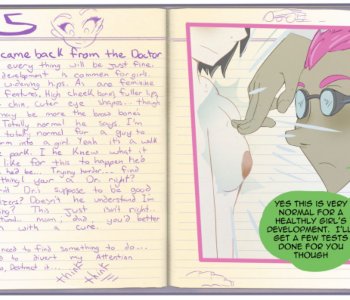 5
came back from the Doctor
every thing will be just fine.
development is common for girls.
widening hips. As are feminine
features. High cheek bones, fuller lips,
chin. Cuter eye shapes. though
may be more the brows bones
Totally normal he says. I'm
totally normal for a guy to
turn into a girl. Yeah its a walk
park. If he knew what it
like for this to happen he'd
be... Trying harder... find
thing! your a Dr. right?
Dr.s suppose to be good
Doesn't he understand I'm
This just isn't right.
mom, dad, you'd better
with a cure.
need to find something to do...
to divert my Attention
think
think
YES THIS IS VERY
NORMAL FOR A
HEALTHLY GIRL'S
DEVELOPMENT. I'LL
GET A FEW TESTS
DONE FOR YOU
THOUGH